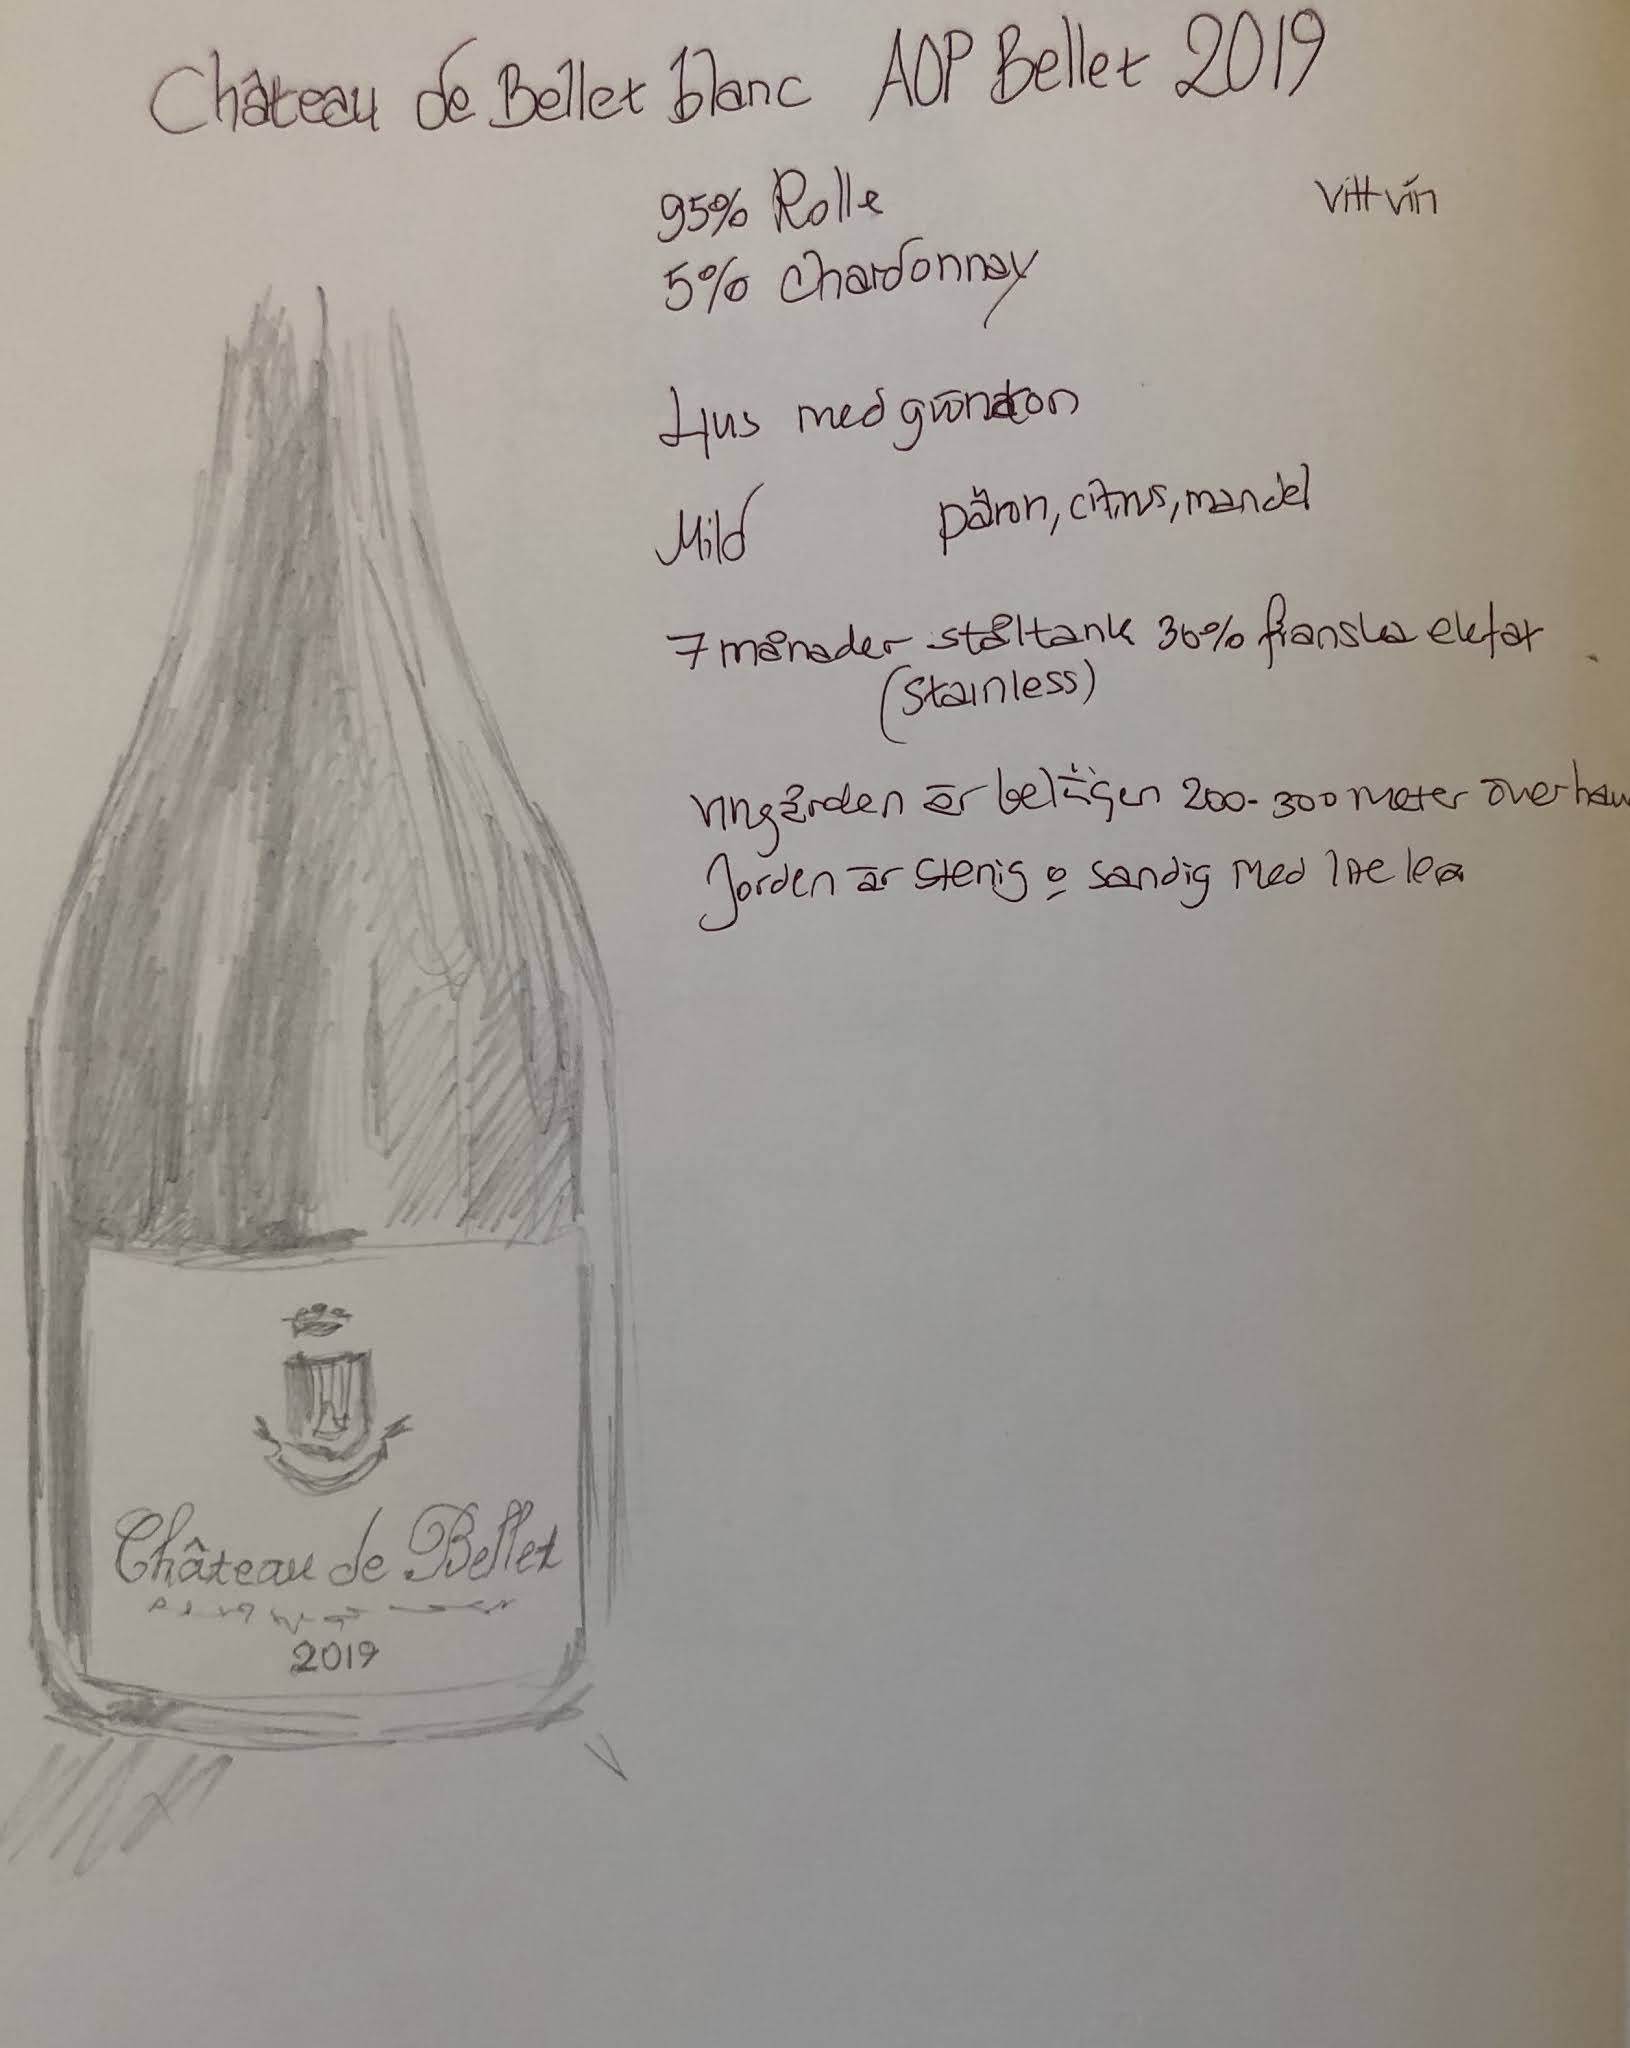 Château de Bellet blanc AOP Bellet 2019
95% Rolle
vitt vin
5% Chardonnay
Ljus med grönton
Mild päron, citrus, mandel
7 månader ståltank 30% franska ekfat
(Stainless)
vingården är belägen 200-300 meter över hav
Jorden är stenig o sandig med lite lera
Château de Bellet
2019